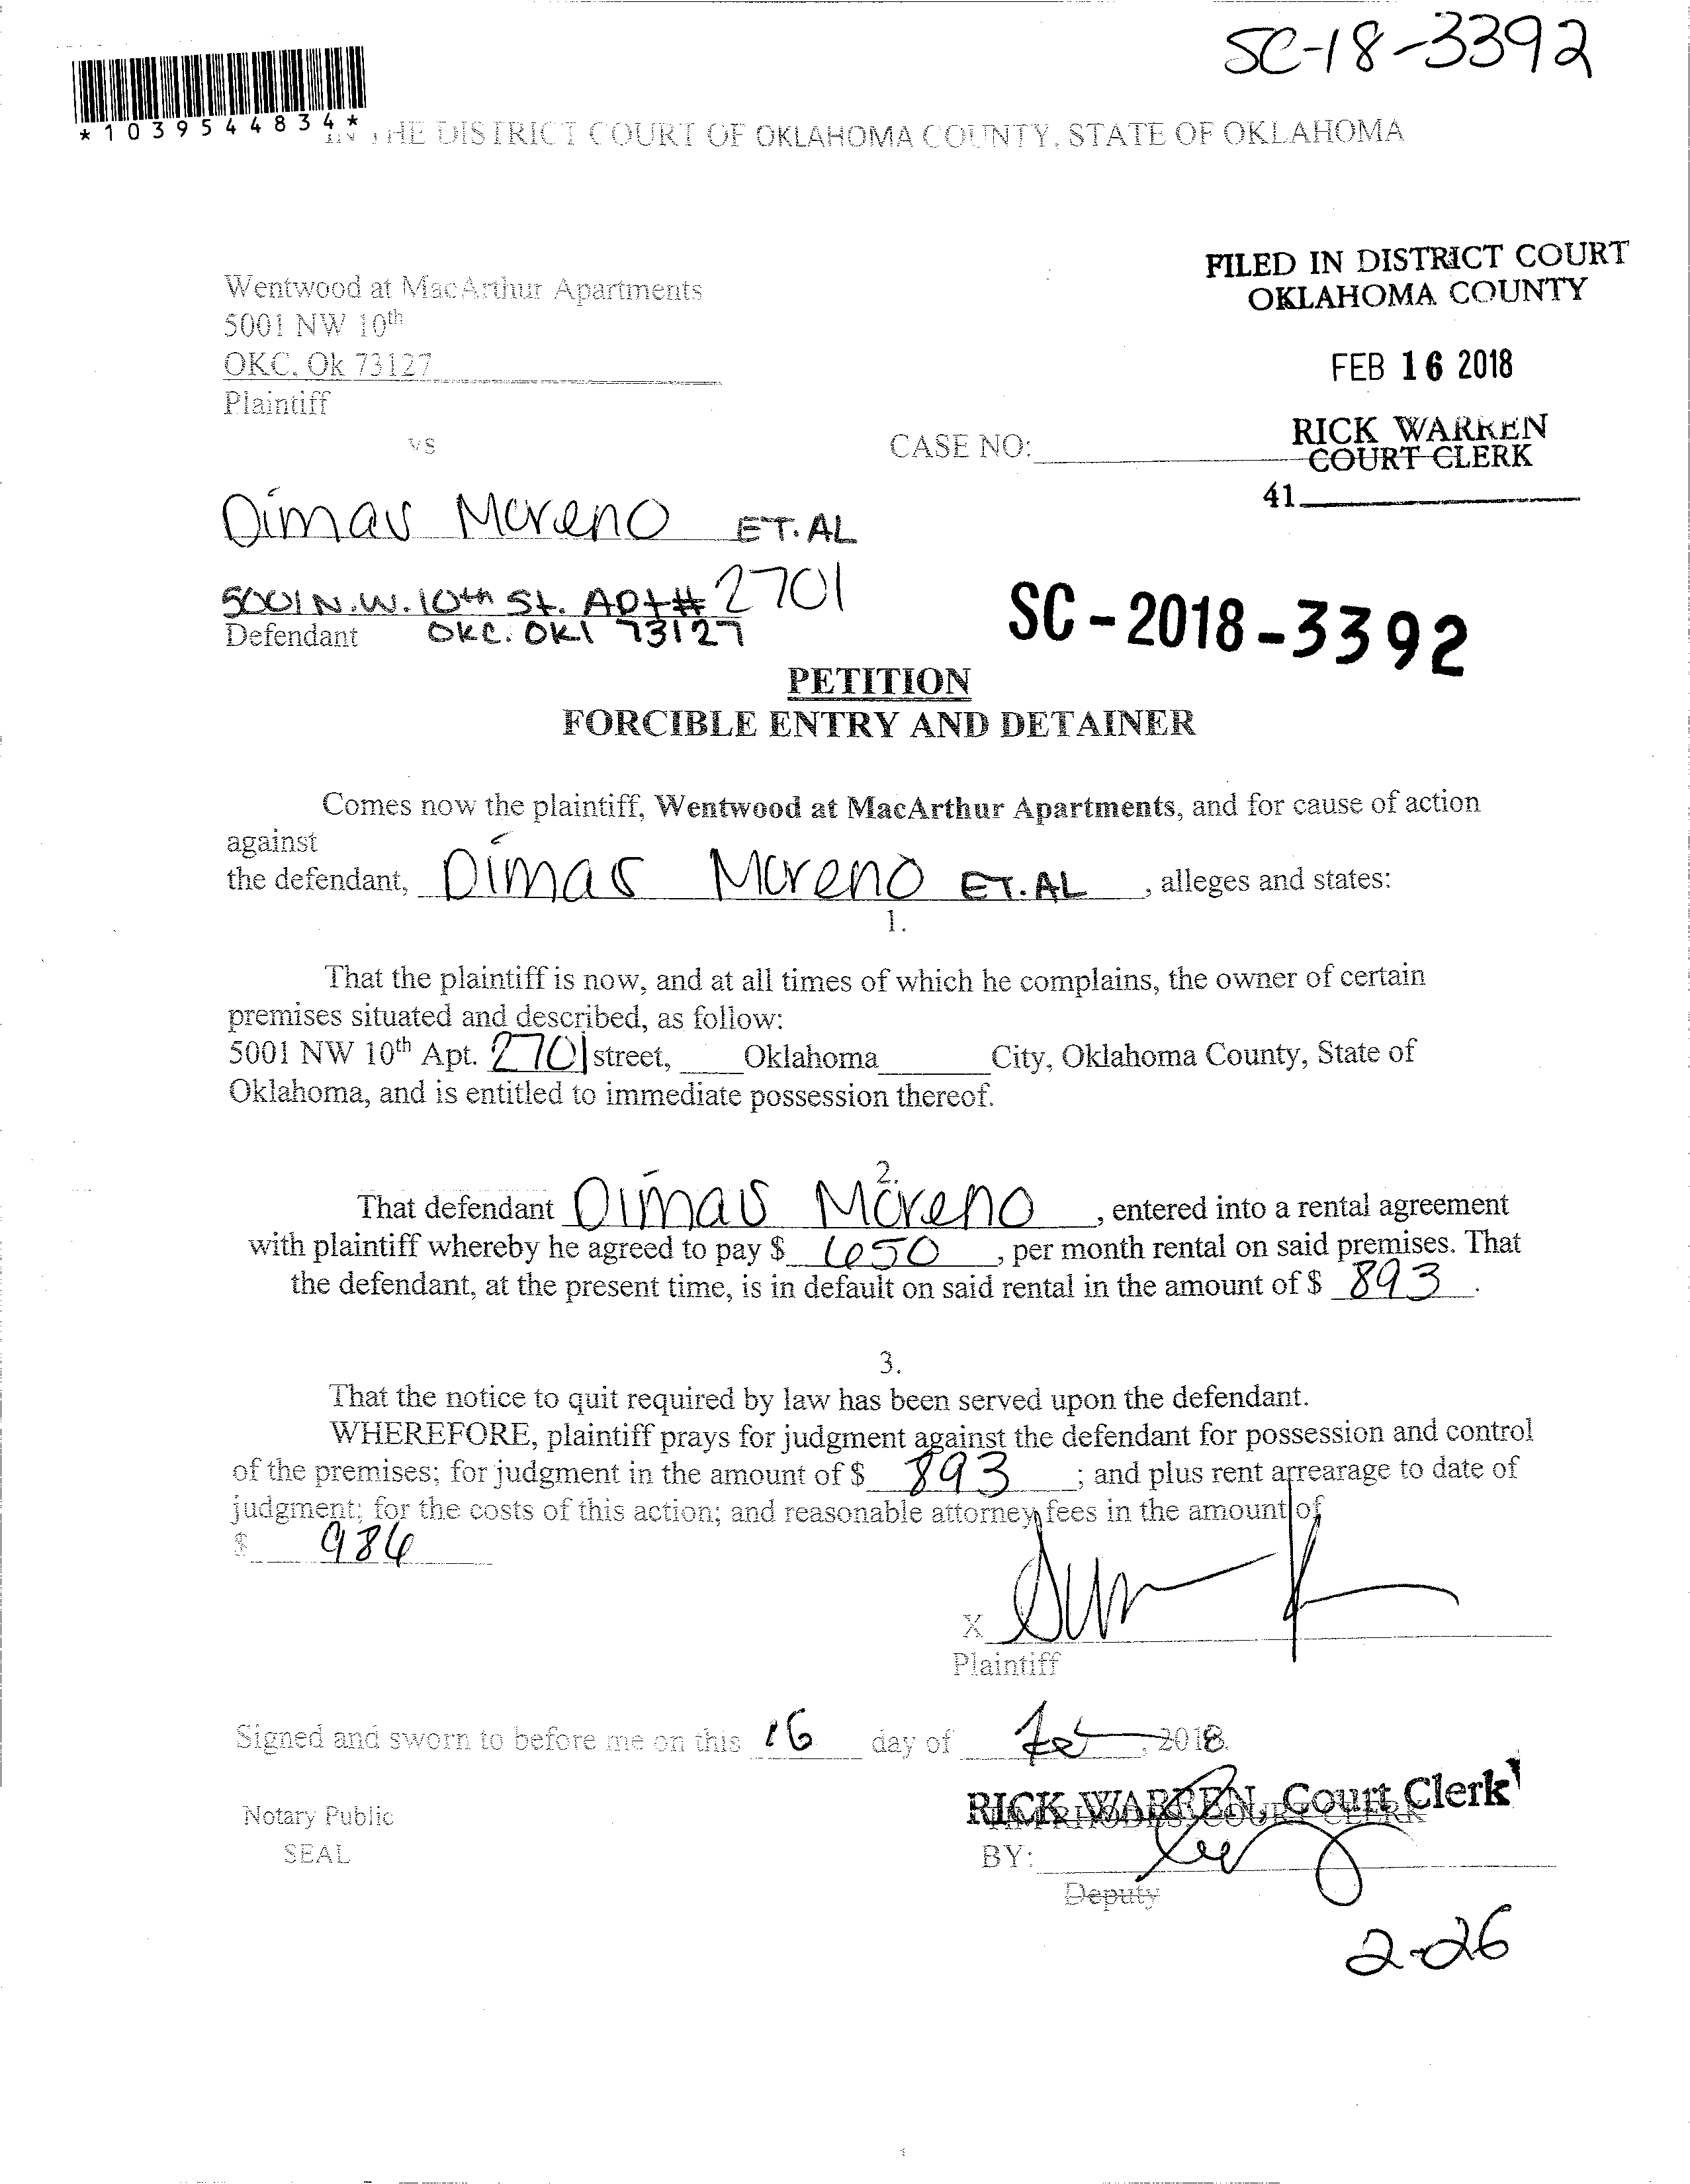 SC-18-3392
*1039544834*
IN THE DISTRICT COURT OF OKLAHOMA COUNTY, STATE OF OKLAHOMA
FILED IN DISTRICT COURT
OKLAHOMA COUNTY
FEB 16 2018
RICK WARREN
COURT CLERK
41
Wentwood at MacArthur Apartments
5001 NW 10th
OKC, Ok 73127
Plaintiff
vs
CASE NO:
Dimas Moreno ET.AL
5001 N.W. 10th St. APt# 2701
Defendant OKC. OKl 73127
SC-2018-3392
PETITION
FORCIBLE ENTRY AND DETAINER
Comes now the plaintiff, Wentwood at MacArthur Apartments, and for cause of action
against
the defendant, Dimas Moreno ET.AL, alleges and states:
1.
That the plaintiff is now, and at all times of which he complains, the owner of certain
premises situated and described, as follow:
5001 NW 10th Apt. 2701 street, Oklahoma City, Oklahoma County, State of
Oklahoma, and is entitled to immediate possession thereof.
2.
That defendant Dimas Moreno, entered into a rental agreement
with plaintiff whereby he agreed to pay $ 650, per month rental on said premises. That
the defendant, at the present time, is in default on said rental in the amount of $ 893.
3.
That the notice to quit required by law has been served upon the defendant.
WHEREFORE, plaintiff prays for judgment against the defendant for possession and control
of the premises; for judgment in the amount of $ 893; and plus rent arrearage to date of
judgment; for the costs of this action; and reasonable attorney fees in the amount of
$ 986
X
Plaintiff
Signed and sworn to before me on this 16 day of Feb, 2018.
RICK WARREN, Court Clerk
Notary Public
SEAL
BY:
Deputy
2-26